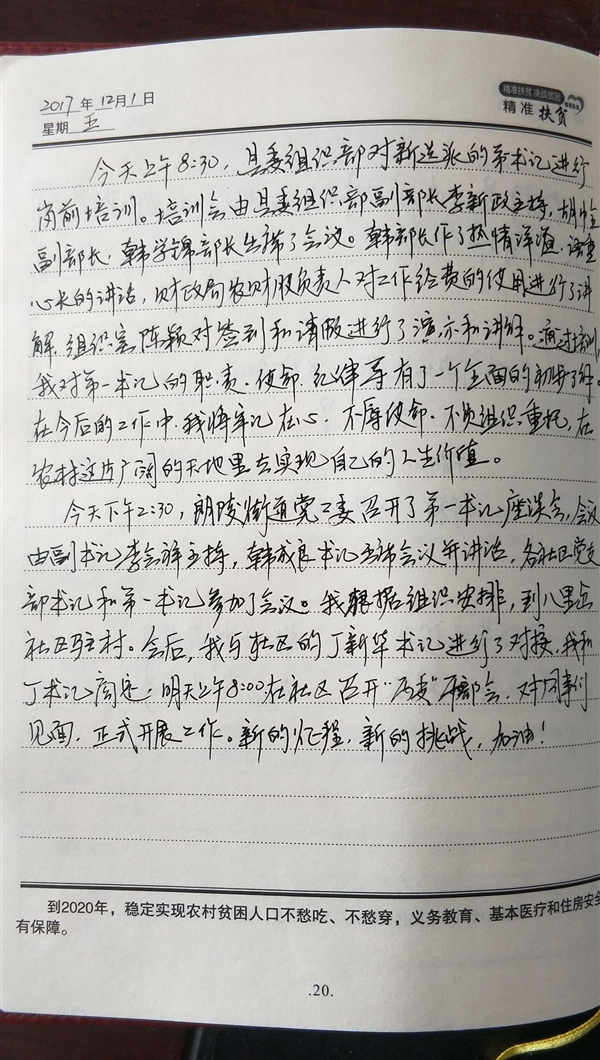 2017年12月1日
星期五
精准扶贫 决战贫困
精准扶贫
今天上午8:30，县委组织部对新选派的第一书记进行
岗前培训。培训会由县委组织部副部长李新政主持，胡
副部长、韩学锦部长出席了会议。韩部长作了热情洋溢、语重
心长的讲话，财政局农财股负责人对工作经费的使用进行了讲
解，组织室陈颖对签到和请假进行了演示和讲解。通过培训，
我对第一书记的职责、使命、纪律等有了一个全面的初步了解。
在今后的工作中，我将牢记在心，不辱使命，不负组织重托，在
农村这片广阔的天地里去实现自己的人生价值。
今天下午2:30，朗陵街道党工委召开了第一书记座谈会，会议
由副书记李会祥主持，韩成良书记出席会议并讲话，各社区党支
部书记和第一书记参加了会议。我根据组织安排，到八里岔
社区驻村。会后，我与社区的丁新华书记进行了对接，我和
丁书记商定：明天上午8:00在社区召开“两委”干部会，对同事们
见面，正式开展工作。新的征程，新的挑战，加油！
到2020年，稳定实现农村贫困人口不愁吃、不愁穿，义务教育、基本医疗和住房安全
有保障。
.20.